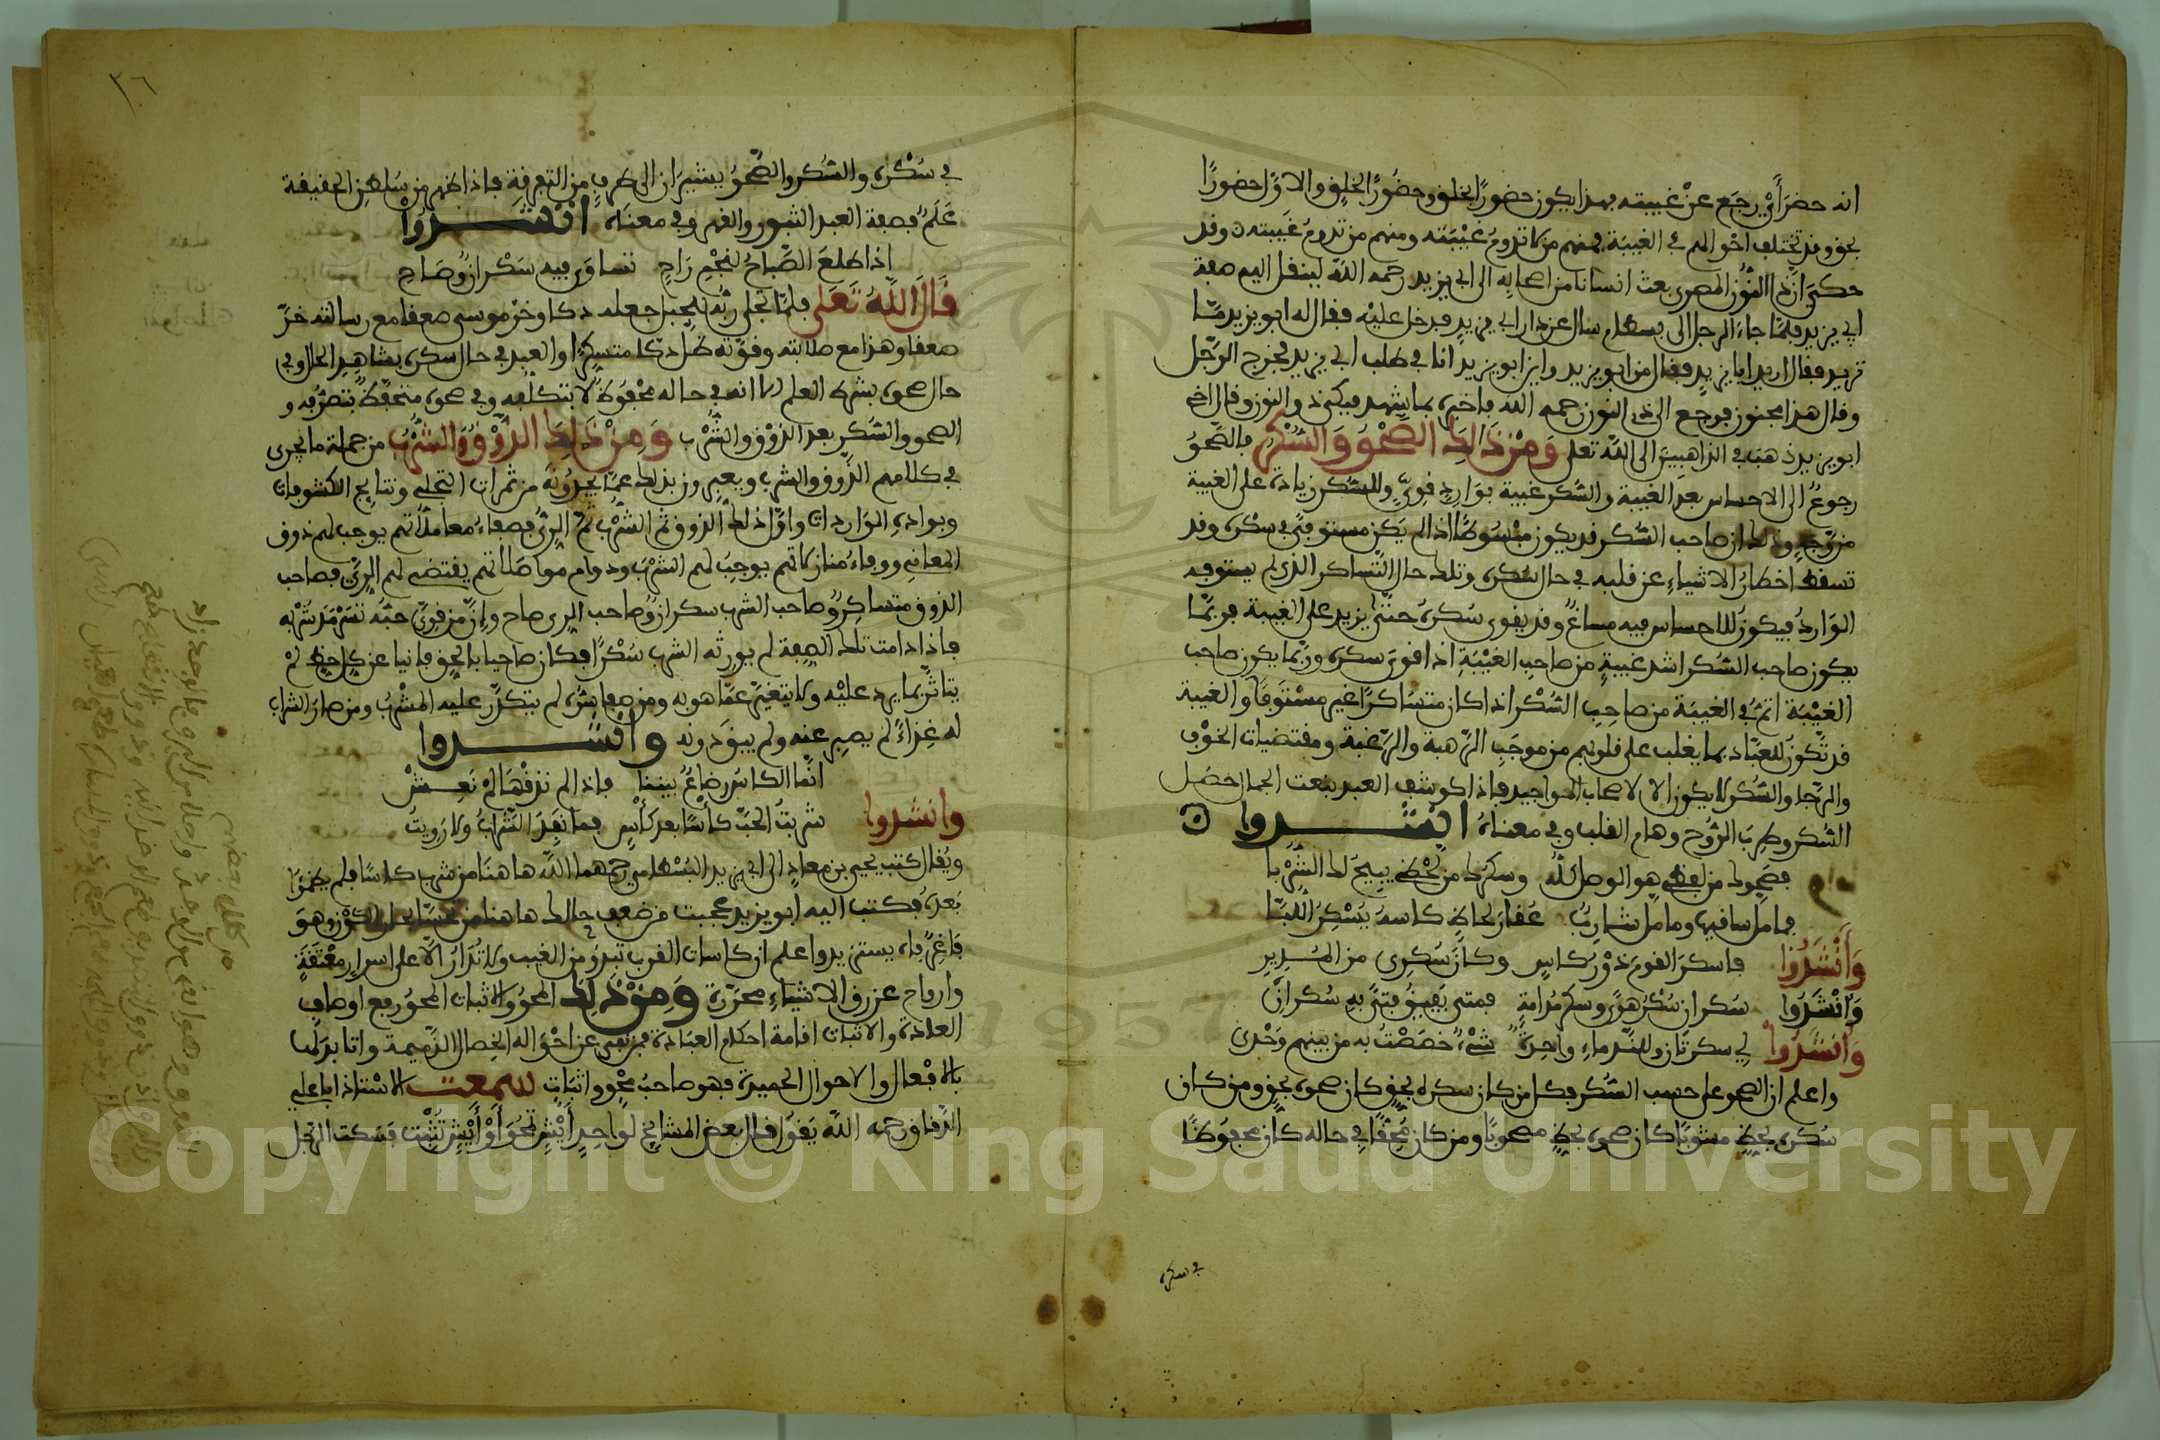 انه حضر أي رجع عن غيبته فهذا يكون حضورا بخلق وحضورا بخلق والاول حضورا
بحق وقد تختلف احوالهم في الغيبة فمنهم من لا تدوم غيبته ومنهم من تدوم غيبته وقد
حكي ان ذا النون المصري بعث انسانا من اصحابه الى ابي يزيد رحمه الله لينقل اليه صفة
ابي يزيد فلما جاء الرجل الى بسطام سال عن دار ابي يزيد فدخل عليه فقال له ابو يزيد ما
تريد فقال اريد ابا يزيد فقال من ابو يزيد واين ابو يزيد انا في طلب ابي يزيد فخرج الرجل
وقال هذا مجنون فرجع الى ذي النون رحمه الله فاخبره بما شهد فبكى ذو النون وقال اخي
ابو يزيد ذهب في الذاهبين الى الله تعلى ومن ذلك الصحو والسكر فالصحو
رجوع الى الاحساس بعد الغيبة والسكر غيبة بوارد قوي وللسكر زيادة على الغيبة
من وجه وذلك ان صاحب السكر قد يكون مبسوطا اذا لم يكن مستوفى في سكره وقد
تسقط اخطار الاشياء عن قلبه في حال سكره وتلك حال التساكر الذي لم يستوفه
الوارد فيكون للاحساس فيه مساغ وقد يقوى سكره حتى يزيد على الغيبة فربما
يكون صاحب السكر اشد غيبة من صاحب الغيبة اذا قوي سكره وربما يكون صاحب
الغيبة اتم في الغيبة من صاحب السكر اذا كان متساكرا غير مستوفا والغيبة
قد تكون للعباد بما يغلب على قلوبهم من موجب الرهبة والرغبة ومقتضيات الخوف
والرجا والسكر لا يكون الا لاصحاب المواجيد فاذا كوشف العبد بنعت الجمال حصل
السكر وطرب الروح وهام القلب وفي معناه انشدوا
فصحوك من لفظي هو الوصل كله وسكرك من لحظي يبيح لك الشربا
فما مل ساقيها وما مل شارب عقار لحاظ كاسه يسكر اللبا
وأنشدوا فاسكر القوم دور كاس وكان سكري من المدير
وانشدوا سكران سكر هوى وسكر مدامة فمتى يفيق فتى به سكران
وأنشدوا لي سكرتان وللندماء واحدة شيء خصصت به من بينهم وحدي
واعلم ان الصحو على حسب السكر فكل من كان سكره بحق كان صحوه بحق ومن كان
سكره بحظ مشوبا كان صحوه بحظ مصحوبا ومن كان محقا في حاله كان محفوظا
في سكره
٣٦
في سكره والسكر والصحو يشيران الى طرف من التفرقة فاذا ظهر من سلطان الحقيقة
علم فصفة العبد الثبور والقهر وفي معناه انشدوا
اذا طلع الصباح لنجم راح تساوى فيه سكران وصاح
قال الله تعلى فلما تجلى ربه للجبل جعله دكا وخر موسى صعقا مع رسالته خر
صعقا وهذا مع صلابته وقوته ظل دكا متكسرا والعبد في حال سكره بشاهد الحال وفي
حال صحوه بشرط العلم الا انه في حاله محفوظ لا بتكلفه وفي صحوه متحفظ بتصرفه و
الصحو والسكر بعد الذوق والشرب ومن ذلك الذوق والشرب من جملة ما يجري
في كلامهم الذوق والشرب ويعبرون بذلك عما يجدونه من ثمرات التجلي ونتايج الكشوفات
وبواده الواردات واول ذلك الذوق ثم الشرب ثم الري فصفاء معاملاتهم يوجب لهم ذوق
المعاني ووفاء منازلاتهم يوجب لهم الشرب ودوام مواصلاتهم يقتضي لهم الري فصاحب
الذوق متساكر وصاحب الشرب سكران وصاحب الري صاح وان من قوي حبه تسرمد شربه
فاذا دامت تلك الصفة لم يورثه الشرب سكرا فكان صاحيا بالحق فانيا عن كل حظ لم
يتاثر بما يرد عليه ولا يتغير عما هو به ومن صفا سره لم يتكدر عليه الشرب ومن صار الشراب
له غذاء لم يصبر عنه ولم يبق دونه وانشدوا
انما الكاس رضاع بيننا فاذا لم نذقها لم نعش
وانشدوا شربت الحب كأسا بعد كأس فما نفد الشراب ولا رويت
ويقال كتب يحيى بن معاذ الى ابي يزيد البسطامي رحمهما الله ها هنا من شرب كاسا فلم يظمأ
بعده فكتب اليه ابو يزيد عجبت من ضعف حالك ها هنا من يحتسي بحار الكون وهو
فاغر فاه يستزيد واعلم ان كاسات القرب تبدو من الغيب ولا تدار الا على اسرار معتقة
وارواح عن رق الاشياء محررة ومن ذلك المحو والاثبات المحو رفع اوصاف
العادة والاثبات اقامة احكام العبادة فمن نفى عن احواله الخصال الذميمة واتا بدلها
بالافعال والاحوال الحميدة فهو صاحب محو واثبات سمعت الاستاذ ابا علي
الدقاق رحمه الله يقول قال بعض المشايخ لواحد أيش تمحو أو أيش تثبت فسكت الرجل
Copyright © King Saud University
1957